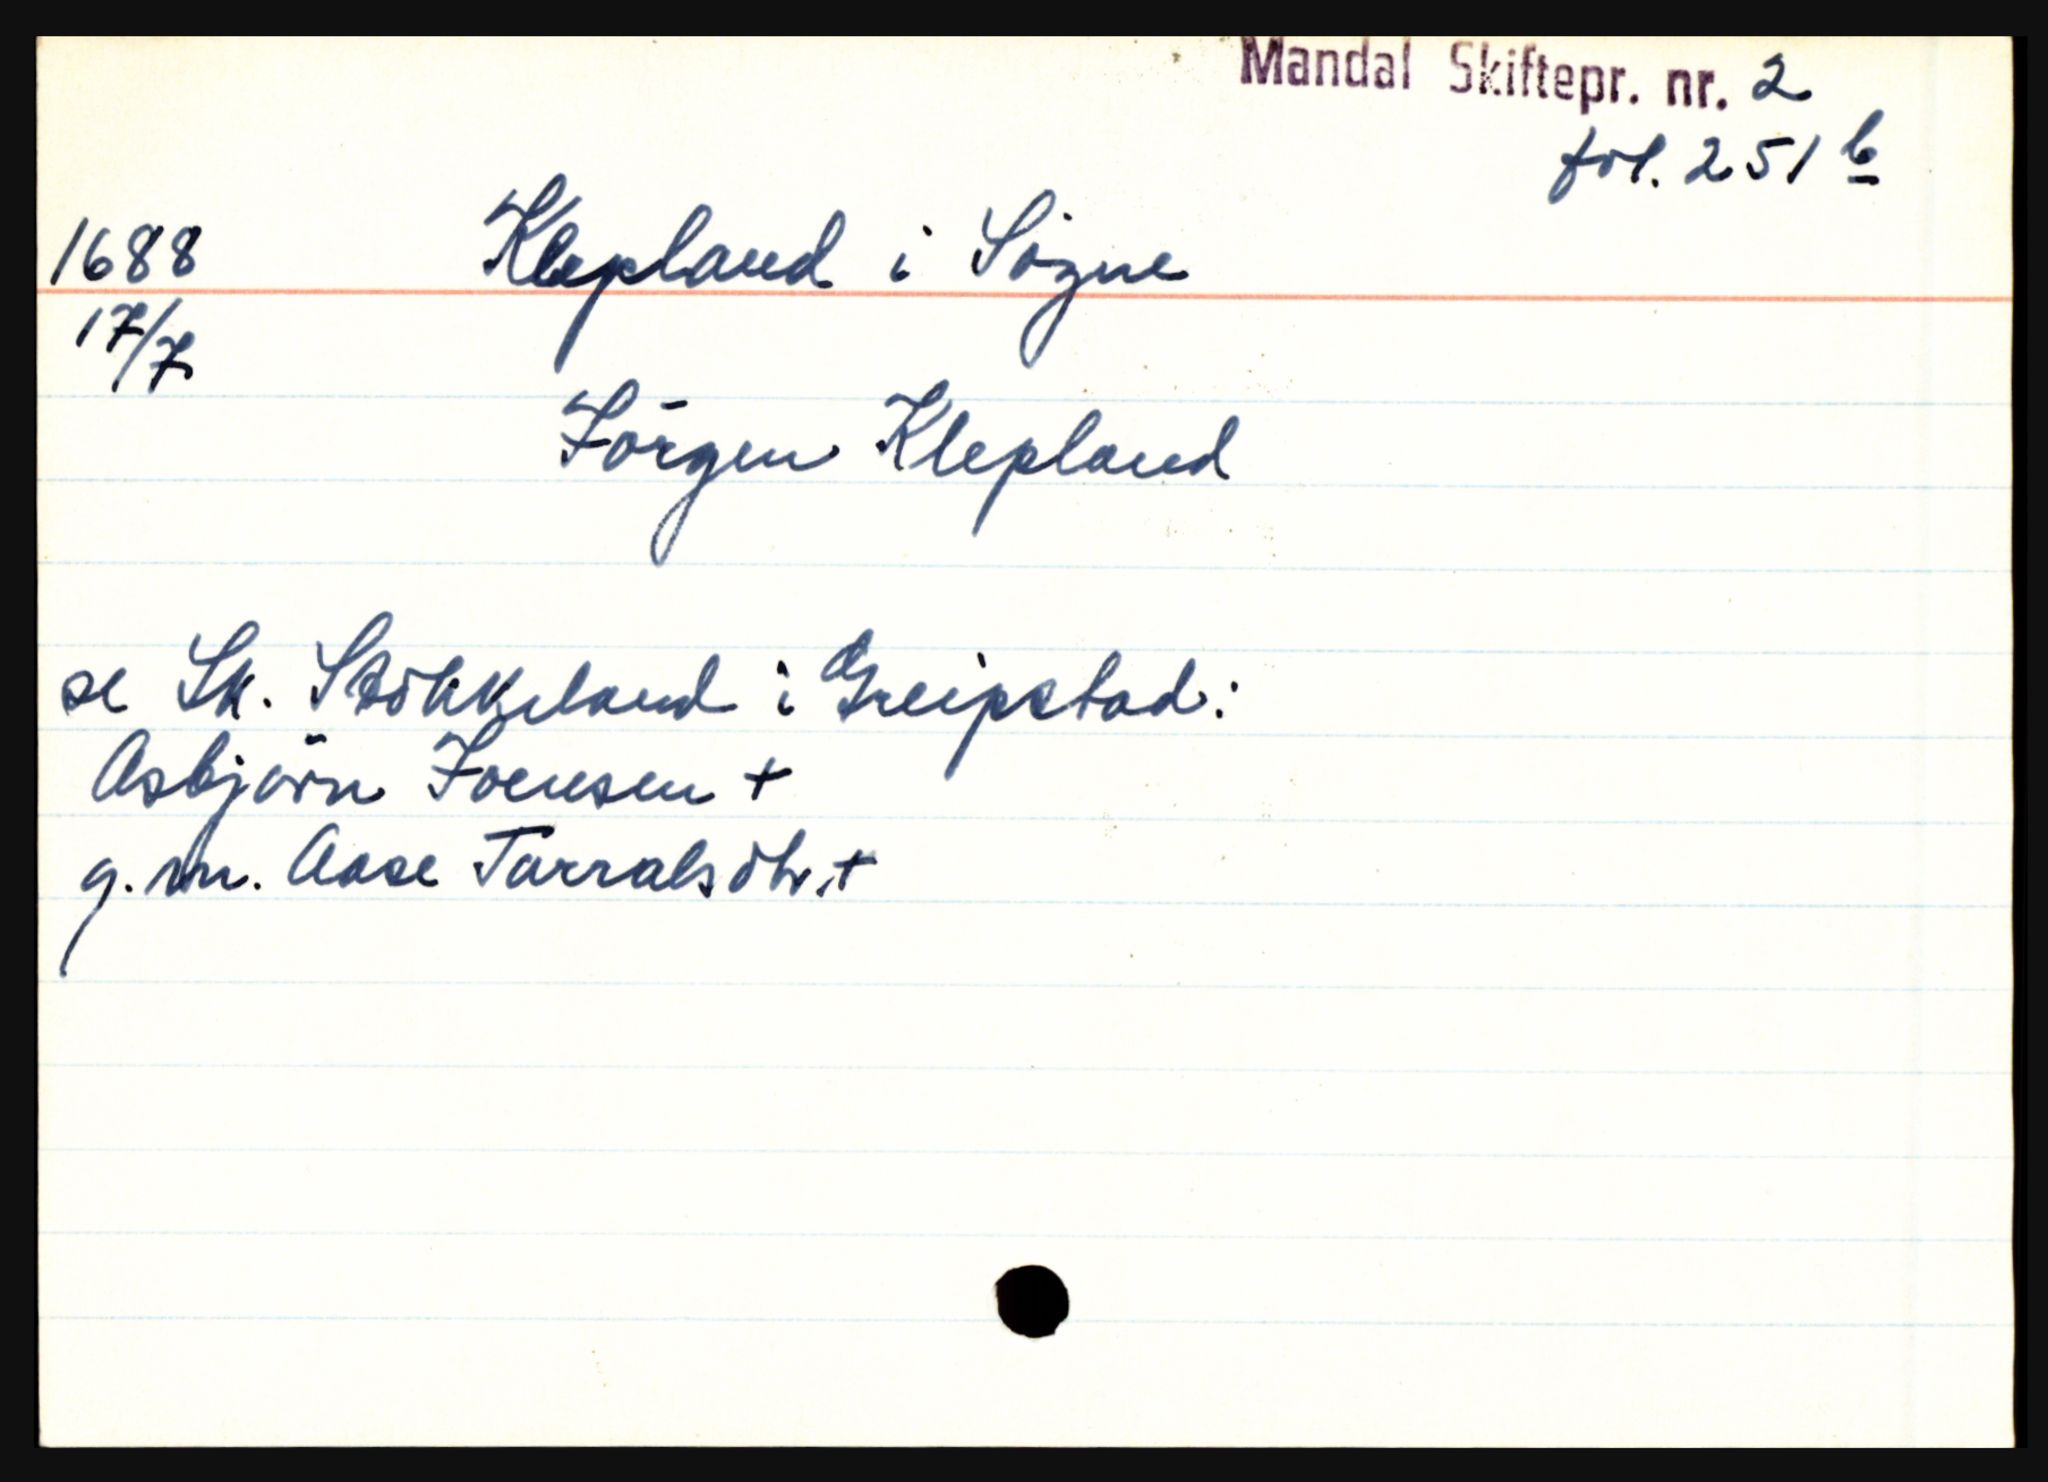 Mandal Skiftepr. nr. 2
fol. 251 b
1688 Klepland i Søgne
17/7
Jörgen Klepland
se Sk. Stökkeland i Greipstad:
Asbjörn Joensen +
g.m. Aase Tarralsdtr. +